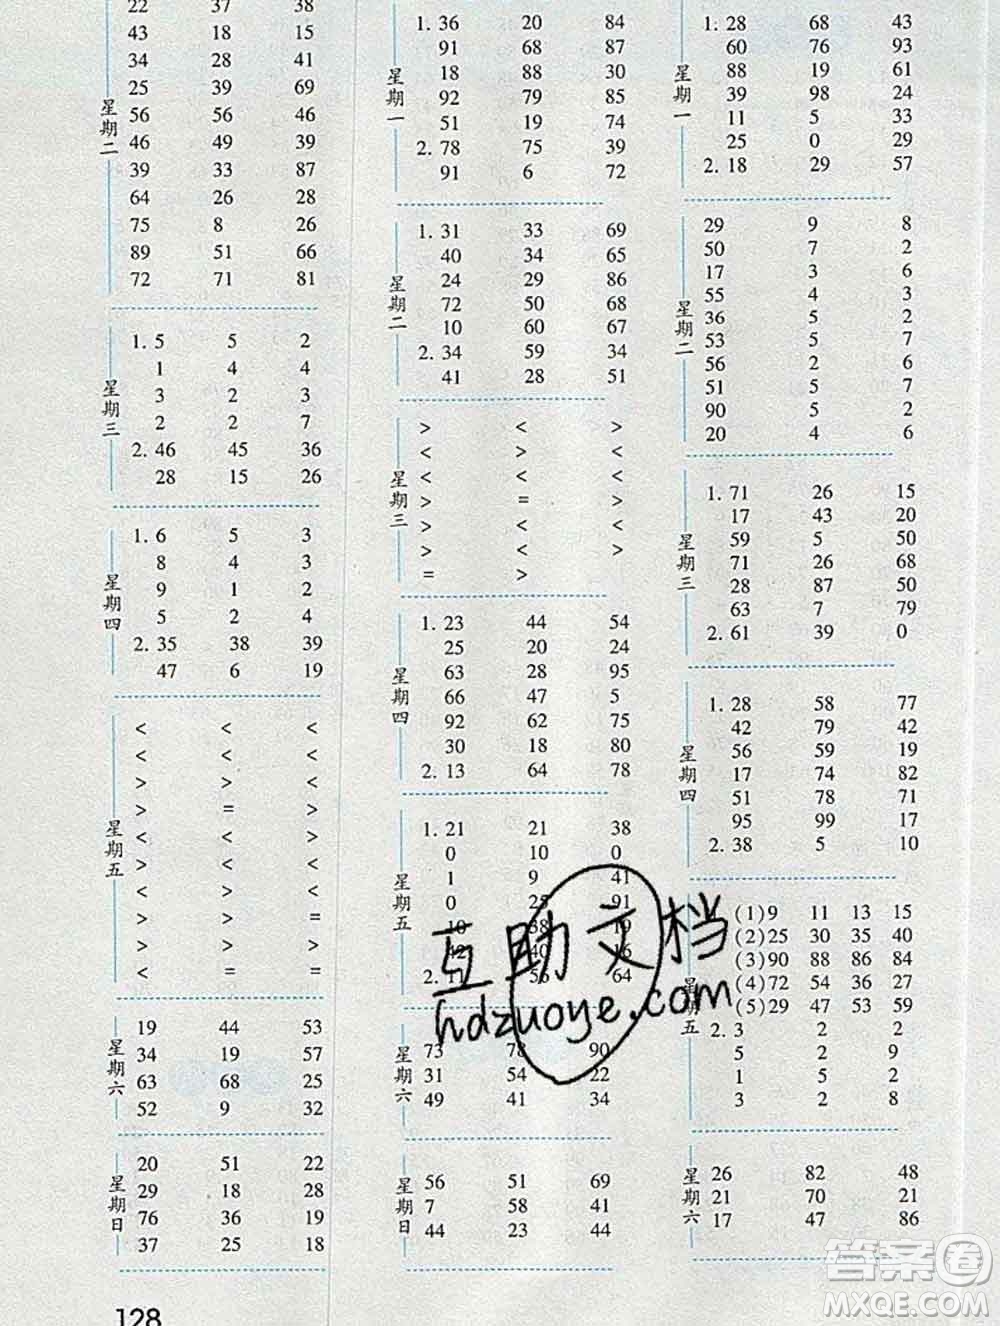 22 37 38
43 18 15
34 28 41
25 39 69
56 56 46
46 49 39
39 33 87
64 26 28
75 8 26
89 51 66
72 71 81
星期二
1. 5 5 2
1 4 4
3 2 3
2 2 7
2. 46 45 36
28 15 26
星期三
1. 6 5 3
8 4 3
9 1 2
5 2 4
2. 35 38 39
47 6 19
星期四
< < <
< < <
> < >
> = >
< < >
> < >
< > >
> > =
> > >
< = =
星期五
19 44 53
34 19 57
63 68 25
52 9 32
星期六
20 51 22
29 18 28
76 36 19
37 25 18
星期日
128
1. 36 20 84
91 68 87
18 88 30
92 79 85
51 19 74
2. 78 75 39
91 6 72
星期一
1. 31 33 69
40 34 65
24 29 86
72 50 68
10 60 67
2. 34 59 34
41 28 51
星期二
> < >
< > <
< < >
> = >
> < <
> < >
= >
星期三
1. 23 44 54
25 20 24
63 28 95
66 47 5
92 62 75
30 18 80
2. 13 64 78
星期四
1. 21 21 38
0 10 0
1 9 41
0 25 91
10 38 19
42 40 16
2. 11 56 64
星期五
73 78 90
31 54 22
49 41 34
星期六
56 51 69
7 58 41
44 23 44
星期日
1. 28 68 43
60 76 93
88 19 61
39 98 24
11 5 33
25 0 29
2. 18 29 57
星期一
29 9 8
50 7 2
17 3 6
55 4 3
36 5 5
53 5 7
56 2 6
51 5 7
90 5 2
20 4 6
星期二
1. 71 26 15
17 43 20
59 5 50
71 26 68
28 87 50
63 7 79
2. 61 39 0
星期三
1. 28 58 77
42 79 42
56 59 19
17 74 82
51 78 71
95 99 17
2. 38 5 10
星期四
(1)9 11 13 15
(2)25 30 35 40
(3)90 88 86 84
(4)72 54 36 27
(5)29 47 53 59
2. 3 2 2
5 2 9
1 5 2
3 2 8
星期五
26 82 48
21 70 21
17 47 86
星期六
互助文档
hdzuoye.com
答案圈
MXQE.COM